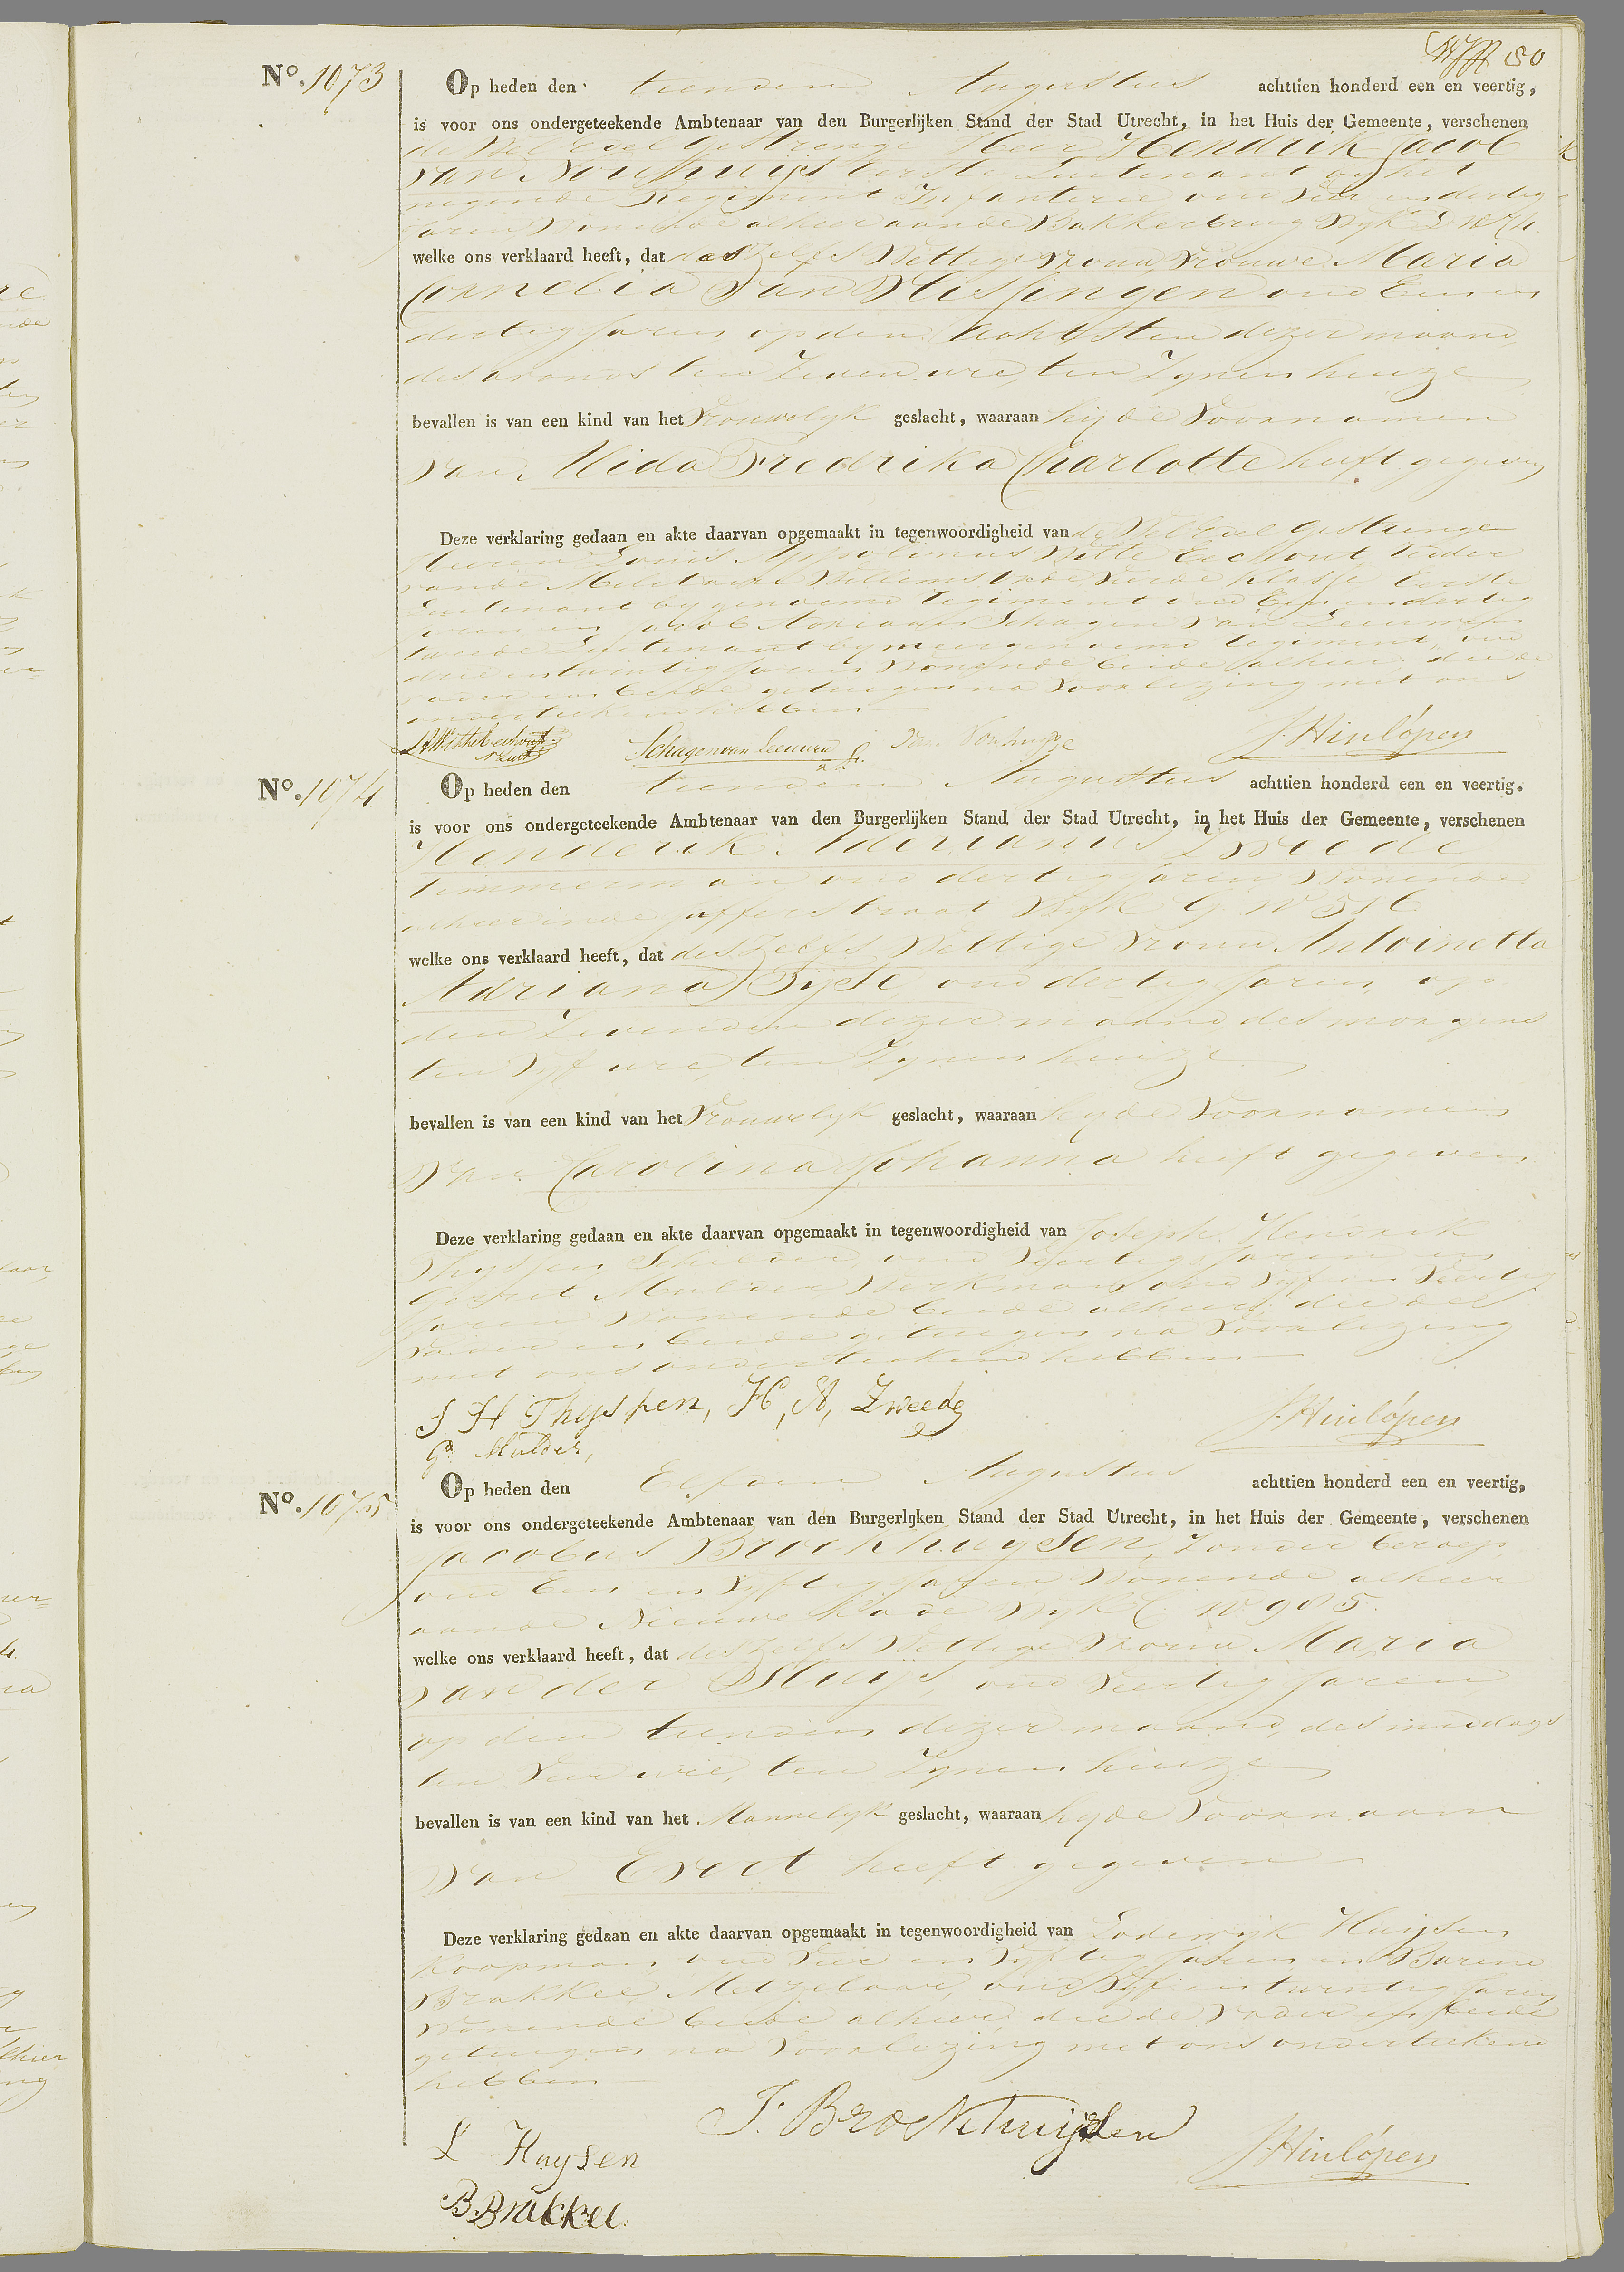 80
No. 1073
Op heden den tienden Augustus achttien honderd een en veertig,
is voor ons ondergeteekende Ambtenaar van den Burgerlijken Stand der Stad Utrecht, in het Huis der Gemeente, verschenen
de Wel Edel Gestrenge Heer Hendrik Jacob
van Nouhuijs Eerste Luitenant by het
negende Regiment Infanterie oud vier en dertig
Jaren Wonende alhier aan de Bakkerbrug Wyk
welke ons verklaard heeft, dat deszelfs Wettige Vrouw, Vrouwe Maria
Cornelia van Vlissingen oud Een en
dertig Jaren, op den Achtsten dezer maand
des avonds ten Zeven ure, ten Zynen huize
bevallen is van een kind van het Vrouwelyk geslacht, waaraan hij de Voornamen
van Alida Fredrika Charlotte heeft gegeven
Deze verklaring gedaan en akte daarvan opgemaakt in tegenwoordigheid van de Wel Edel Gestrenge
Heeren Louis Appolonius Witte Eechout, Ridder
van de Militaire Willemsorde Vierde klasse Eerste
Luitenant by genoemd Regiment oud Een en dertig
Jaren en Jacob Adriaan Schagen van Leeuwen
tweede Luitenant by meergenoemd Regiment, oud
drie en twintig Jaren Wonende beide alhier, die de
vader en beide getuigen na Voorlezing met ons
onderteekend hebben
Schagen van Leeuwen van Nouhuys J. Hinlópen
No. 1074
Op heden den tienden Augustus achttien honderd een en veertig.
is voor ons ondergeteekende Ambtenaar van den Burgerlijken Stand der Stad Utrecht, in het Huis der Gemeente, verschenen
Henderik Aderianus Zweede
timmerman oud dertig Jaren Wonende
alhier in de Jufferstraat Wyk G No 516
welke ons verklaard heeft, dat deszelfs Wettige Vrouw Antoinetta
Adriana Bijst oud dertig Jaren, op
den Zevenden dezer maand des morgens
ten Vyf ure, ten Zynen huize
bevallen is van een kind van het Vrouwelyk geslacht, waaraan hy de Voornamen
van Carolina Johanna heeft gegeven
Deze verklaring gedaan en akte daarvan opgemaakt in tegenwoordigheid van Joseph Hendrik
Thyssen Schilder oud Veertig Jaren en
Gerrit Mulder Werkman oud Vyf en Veertig
Jaren Wonende beide alhier, die de
Vader en beide getuigen na Voorlezing
met ons onderteekend hebben
J H Thyssen, H, A, Zweede J. Hinlópen
G. Mulder,
No. 1075
Op heden den Elfden Augustus achttien honderd een en veertig,
is voor ons ondergeteekende Ambtenaar van den Burgerlijken Stand der Stad Utrecht, in het Huis der Gemeente, verschenen
Jacobus Brockhuysen, Zonder beroep,
oud Een en Vyftig Jaren Wonende alhier
aan de Nieuwe Kade Wyk C No 905.
welke ons verklaard heeft, dat deszelfs Wettige Vrouw Maria
van der Sluijs, oud Veertig Jaren
op den tienden dezer maand, des middags
ten Vier ure, ten Zynen huize
bevallen is van een kind van het Mannelyk geslacht, waaraan hy de Voornaam
van Evert heeft gegeven
Deze verklaring gedaan en akte daarvan opgemaakt in tegenwoordigheid van Lodewyk Huijsen
Koopman, oud Vier en Vyftig Jaren en Barend
Brakkee, Metzelaar, oud Vyf en twintig Jaren
Wonende beide alhier, die de Vader en beide
getuigen na Voorlezing met ons onderteekend
hebben
J. Brockhuijsen
L Huysen J. Hinlópen
B Brakkee